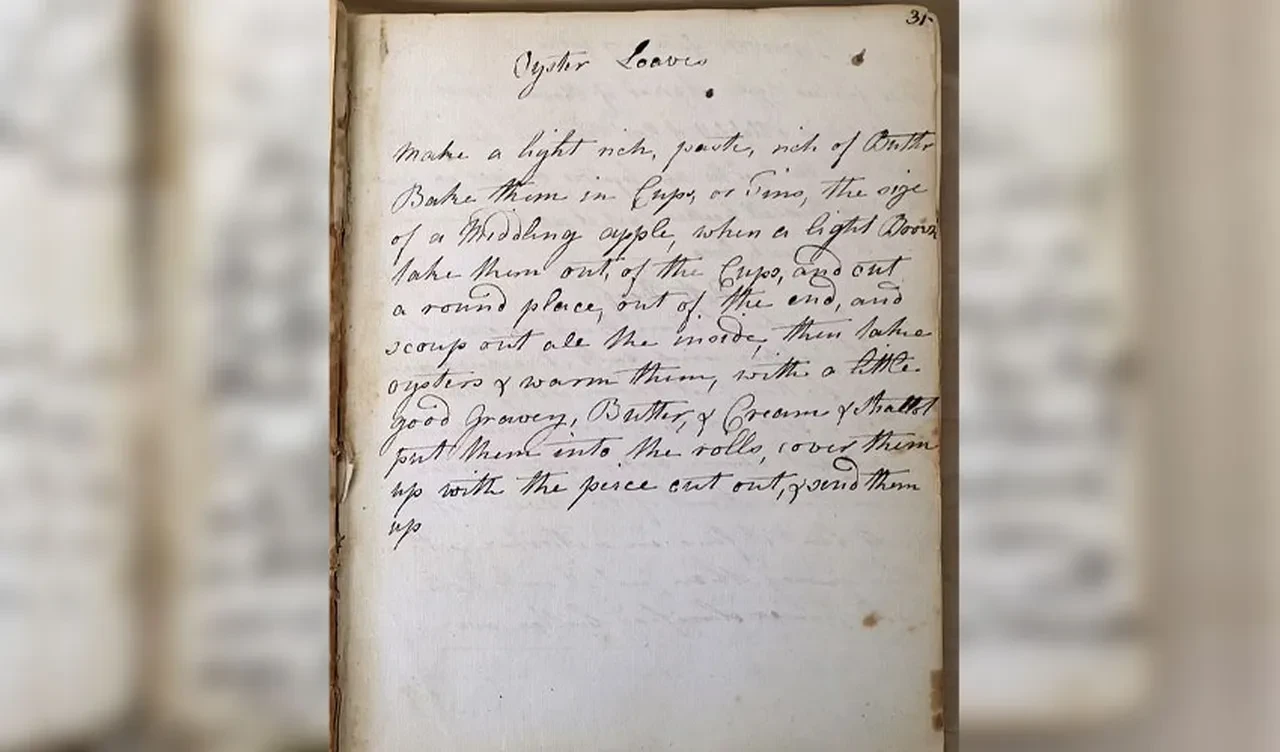 31-
Oyster Loaves
Make a light rich, paste, rich of Butter
Bake them in Cups, or Tins, the size
of a Middling apple, when a light Brown
take them out, of the Cups, and cut
a round place, out of the end, and
scoup out all the inside, then take
oysters & warm them, with a little
good Gravey, Butter, & Cream & shallot
put them into the rolls, cover them
up with the peice cut out, & send them
up